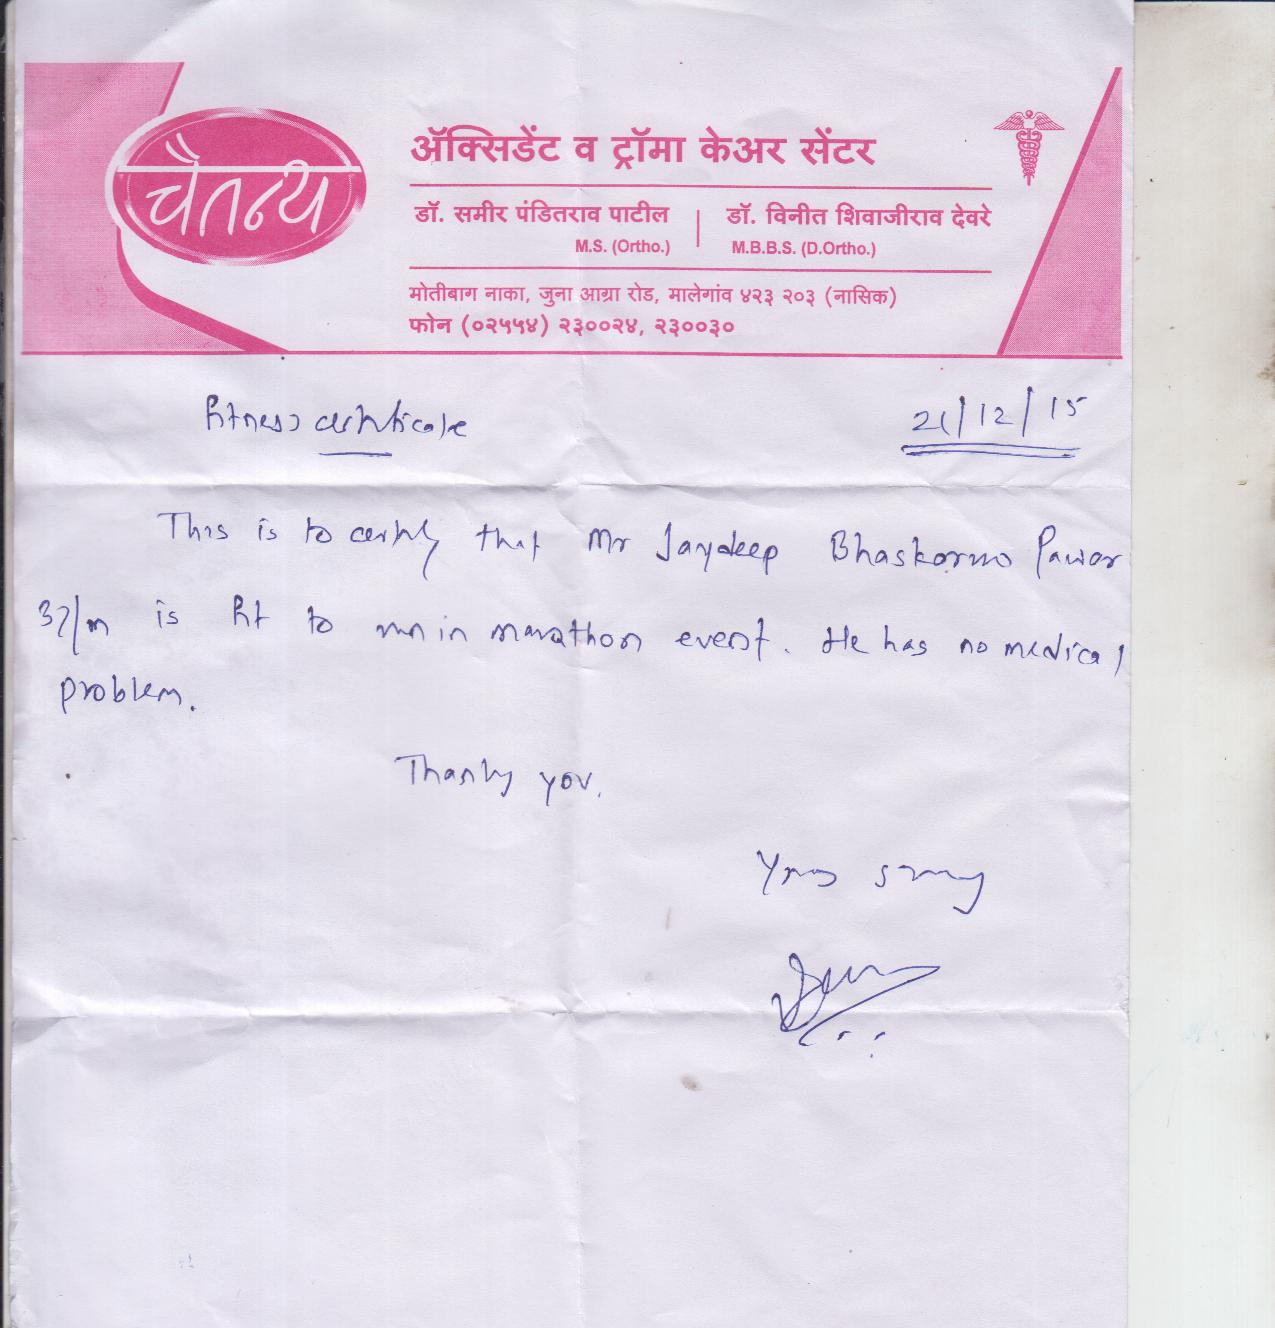 चैतन्य
ॲक्सिडेंट व ट्रॉमा केअर सेंटर
डॉ. समीर पंडितराव पाटील
M.S. (Ortho.)
डॉ. विनीत शिवाजीराव देवरे
M.B.B.S. (D.Ortho.)
मोतीबाग नाका, जुना आग्रा रोड, मालेगांव ४२३ २०३ (नासिक)
फोन (०२५५४) २३००२४, २३००३०
Fitness certificate
21/12/15
This is to certify that Mr Jaydeep Bhaskarrao Pawar
37/m is fit to run in marathon event. He has no medical
problem.
Thanky you.
Yours